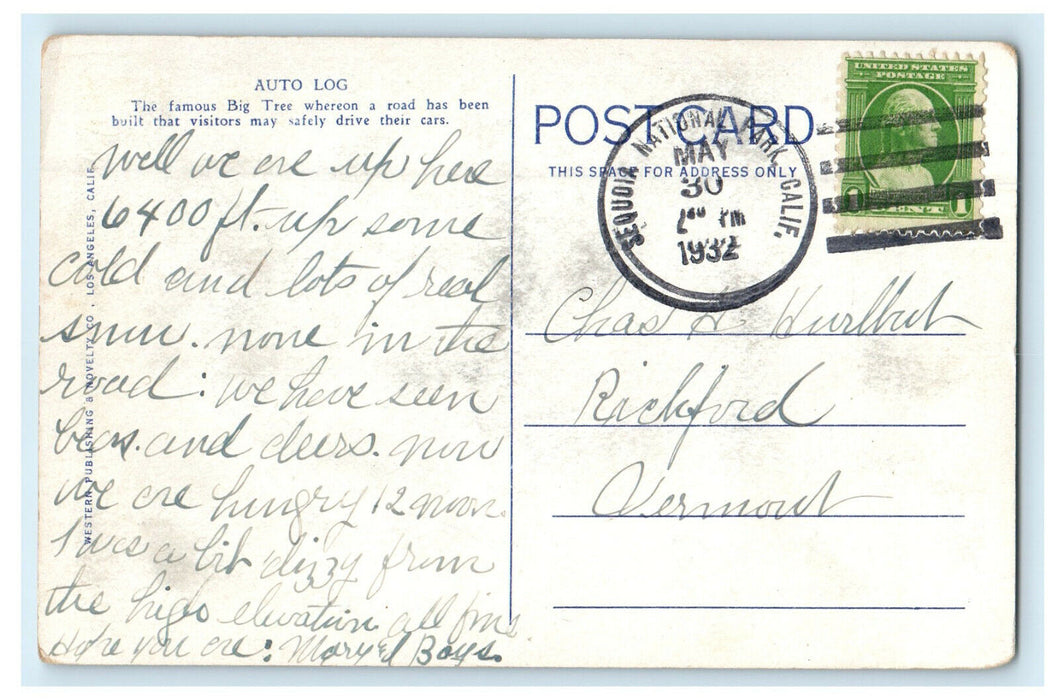 AUTO LOG
The famous Big Tree whereon a road has been
built that visitors may safely drive their cars.
Well we are up here
6400 ft. up some
cold and lots of real
snow. none in the
road: we have seen
bears. and deers. now
we are hungry 12 noon.
I was a bit dizzy from
the high elevation all fine
Hope you are: Mary & Boys.
WESTERN PUBLISHING & NOVELTY CO. LOS ANGELES, CALIF.
POST CARD
THIS SPACE FOR ADDRESS ONLY
SEQUOIA NATIONAL PARK, CALIF.
MAY
30
PM
1932
UNITED STATES
POSTAGE
1 CENT 1
Chas H Hurlbut
Richford
Vermont